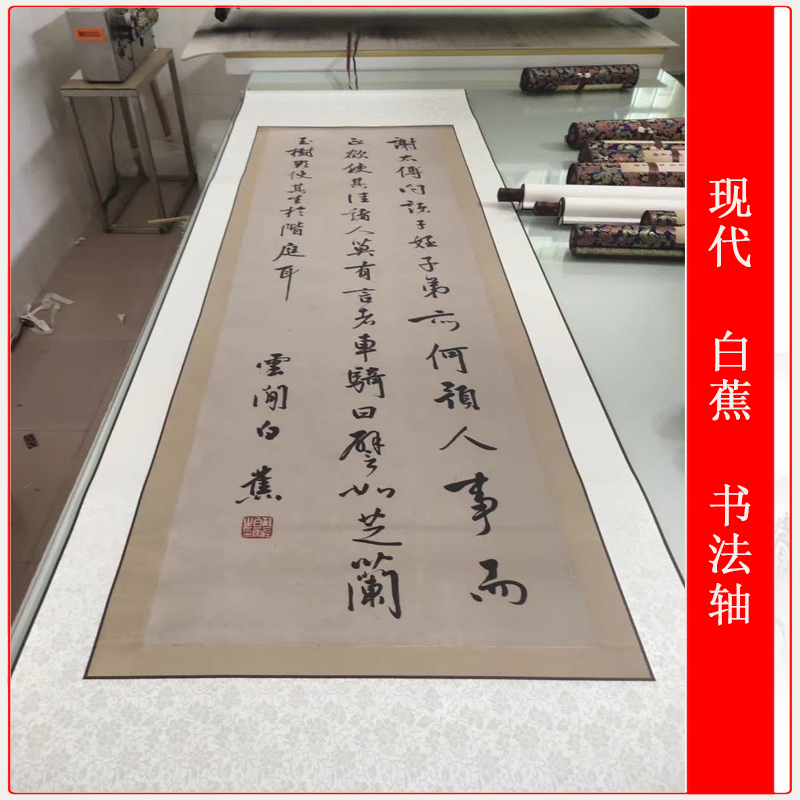 謝太傅問諸子姪子弟亦何預人事而
正欲使其佳諸人莫有言者車騎曰譬如芝蘭
玉樹欲使其生於階庭耳
雲間白蕉
现代 白蕉 书法轴